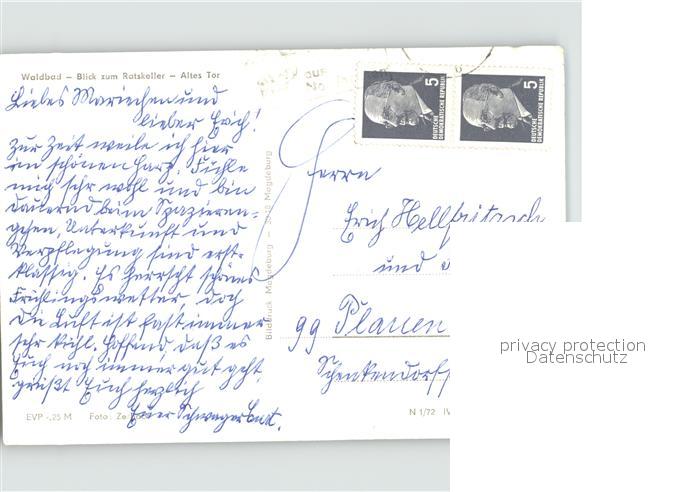 Waldbad – Blick zum Ratskeller – Altes Tor
Liebes Mariechen und
lieber Erich!
Zur Zeit weile ich hier
im schönen Harz. Fühle
mich sehr wohl und bin
dauernd beim Spazieren-
gehen, Unterkunft und
Verpflegung sind erst-
klassig. Es herrscht schönes
Frühlingswetter, doch
die Luft ist fast immer
sehr kühl. Hoffend, daß es
Euch noch immer gut geht
grüßt Euch herzlich
Euer Schwager
EVP -,25 M
Foto: Ze
Bilddruck Magdeburg – Magdeburg
5
DEUTSCHE
DEMOKRATISCHE REPUBLIK
5
DEUTSCHE
DEMOKRATISCHE REPUBLIK
Herrn
Erich Hellfritzsch
und
99 Plauen
Schenkendorfs
N 1/72 IV
privacy protection
Datenschutz